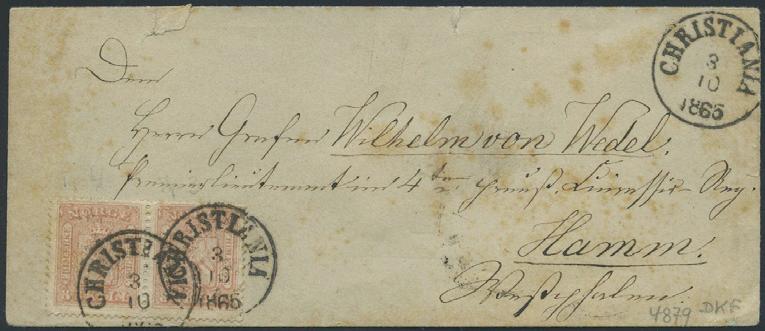 CHRISTIANIA
3
10
1865
Dem
Herrn Grafen Wilhelm von Wedel.
Premierlieutenant im 4ten Preuß. Cuirassir-Reg.
Hamm.
Westphalen.
NORGE
CHRISTIA
3
10
CHRISTIANIA
3
10
1865
4879 DKF